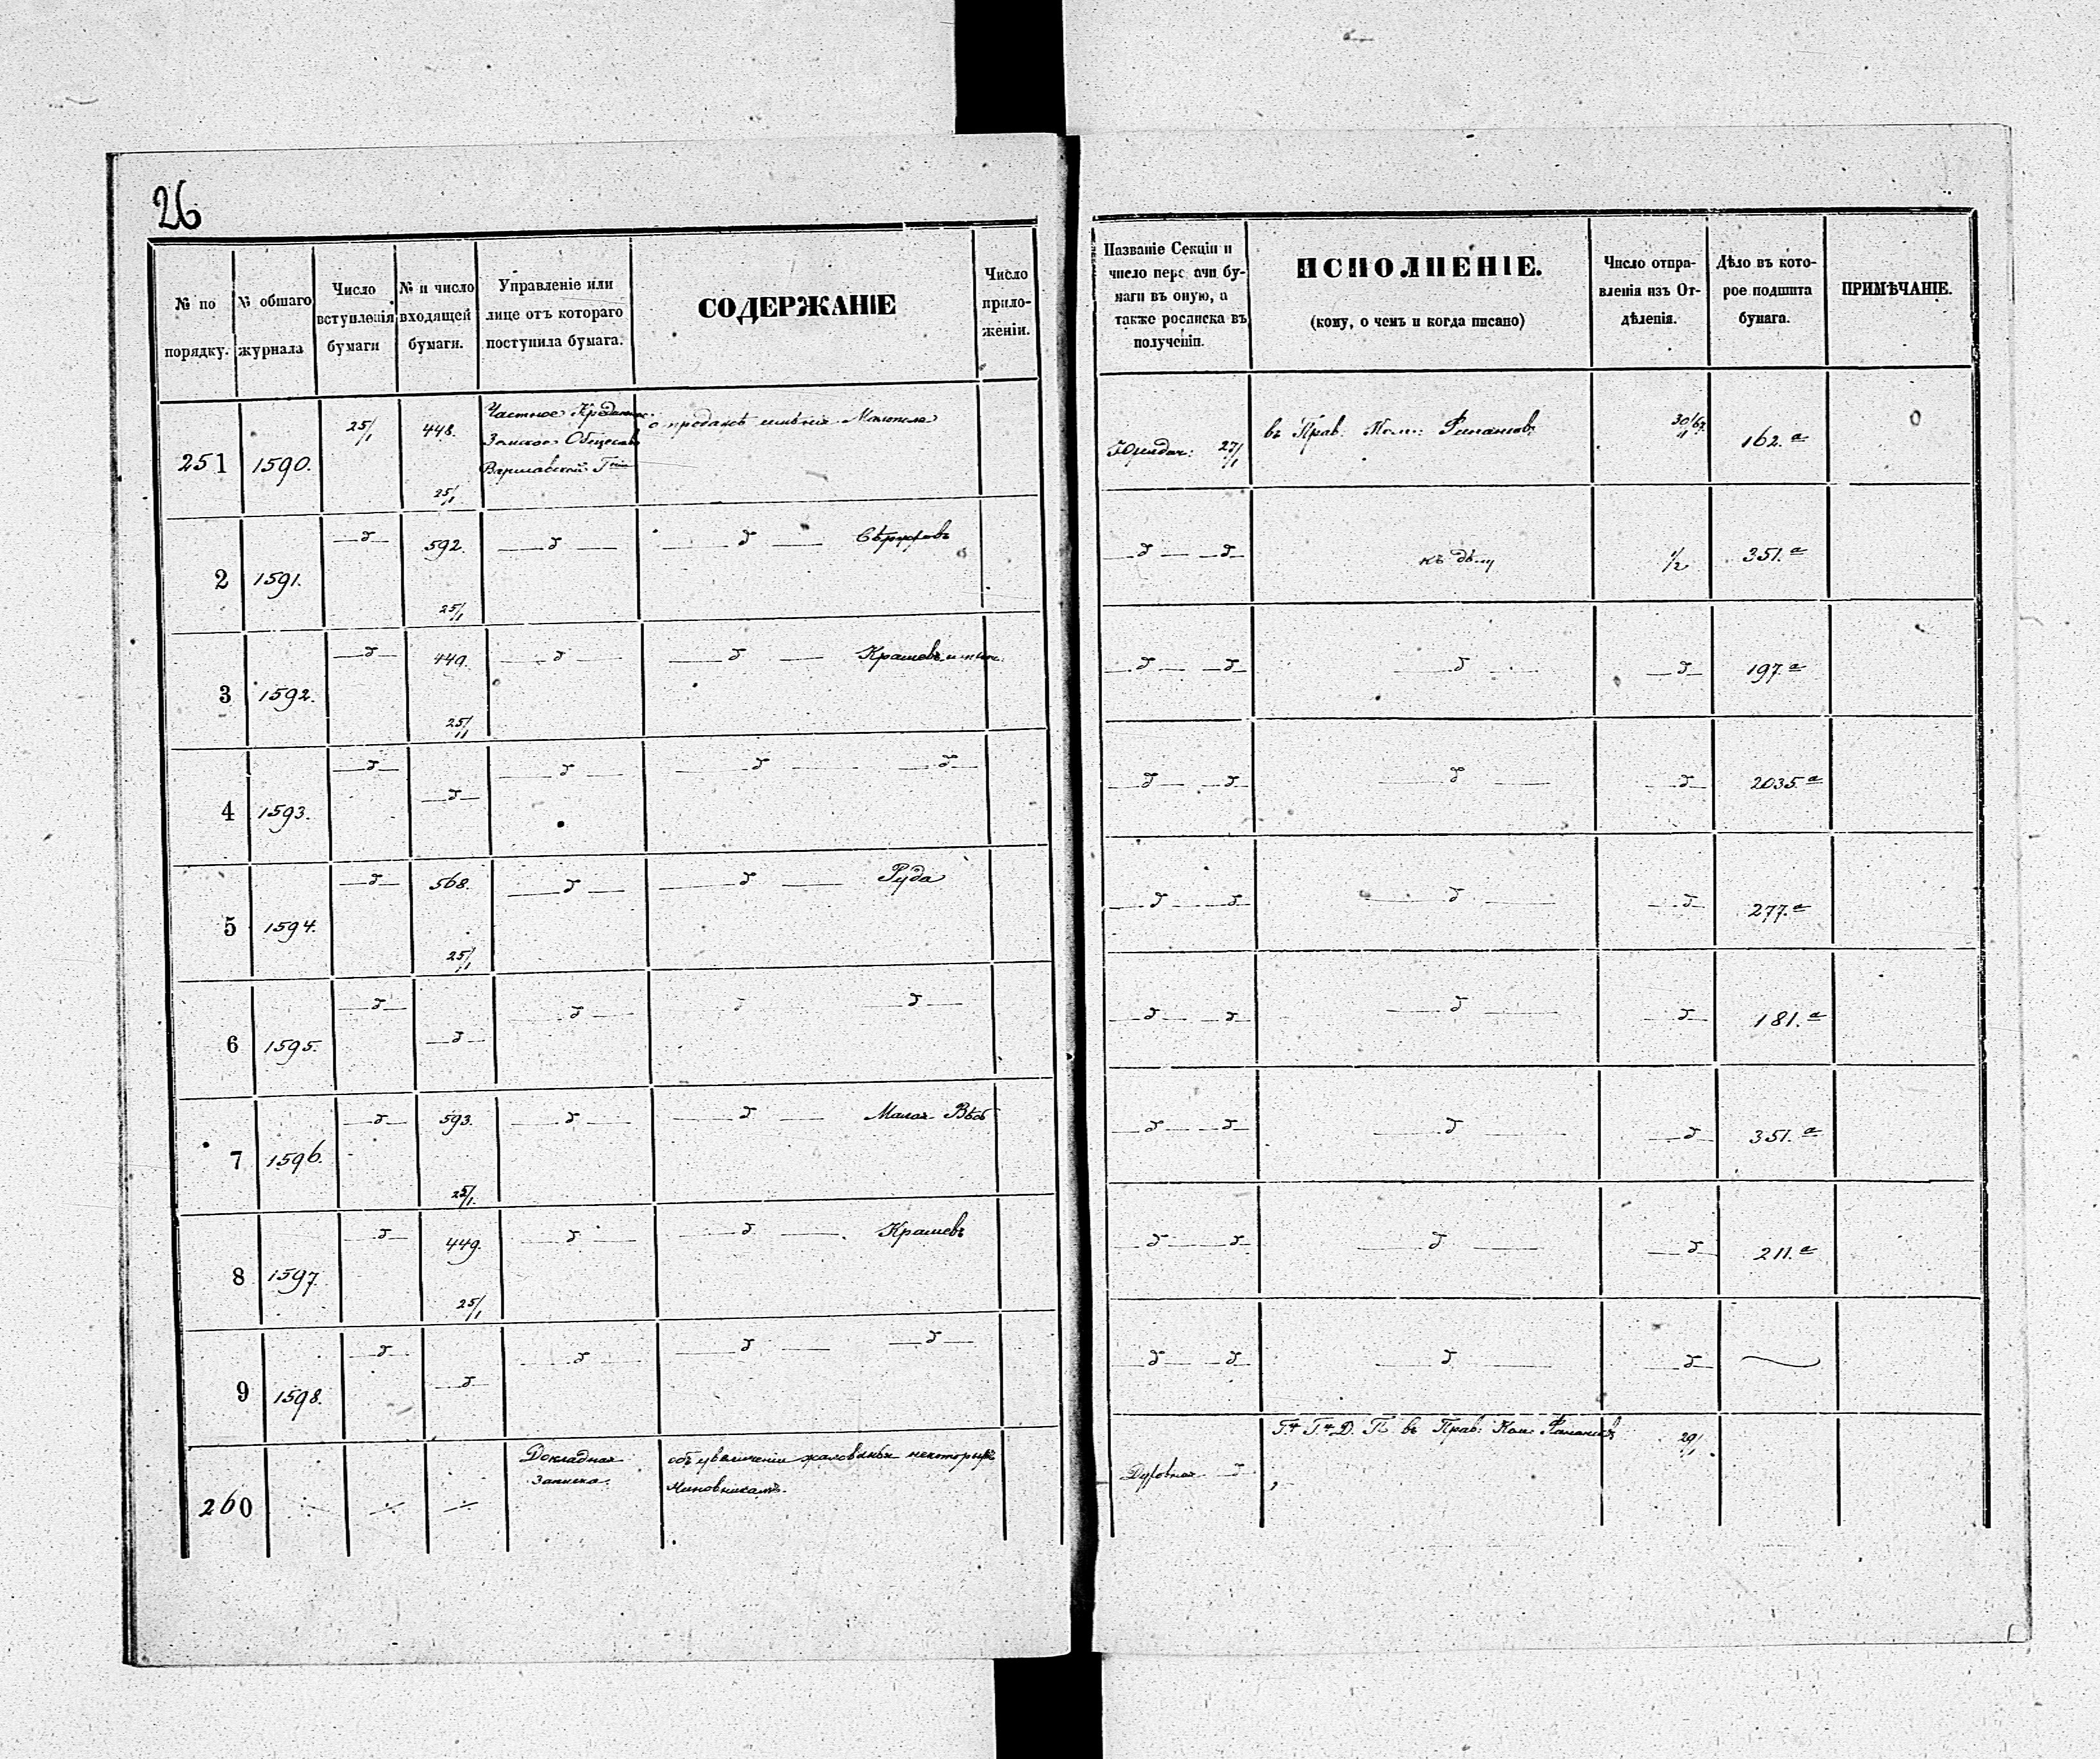 26
№ по порядку.
№ общаго журнала
Число вступленія бумаги
№ и число входящей бумаги.
Управленіе или лице отъ котораго поступила бумага.
СОДЕРЖАНІЕ
Число приложеніи.
Названіе Секціи и число перс ачи бумаги въ оную, а также росписка въ полученіи.
ИСПОЛНЕНІЕ.
(кому, о чемъ и когда писано)
Число отправленія изъ Отдѣленія.
Дѣло въ которое подшита бумага.
ПРИМѢЧАНІЕ.
251 1590. 25/1 448. 25/1
Частное
Земское Общество
Варшавской Гніи
о продажѣ имѣнія
27/1 въ Прав. Ком: Финансовъ 162.а
2 1591. —д— 592. 25/1 —д— —д— —д— —д— къ дѣлу 1/2 351.а
3 1592. —д— 449. 25/1 —д— —д— —д— —д— —д— —д— 197.а
4 1593. —д— —д— —д— —д— —д— —д— —д— —д— —д— 2035.а
5 1594. —д— 568. 25/1 —д— —д— Руда —д— —д— —д— —д— 277.а
6 1595. —д— —д— —д— —д— —д— —д— —д— —д— 181.а
7 1596. —д— 593. 25/1. —д— —д— Малая —д— —д— —д— —д— 351.а
8 1597. —д— 449. 25/1 —д— —д— Крашевъ —д— —д— —д— —д— 211.а
9 1598. —д— —д— —д— —д— —д— —д— —д— —д— —д—
260
Докладная
записка.
объ увеличеніи жалованья некоторымъ
Чиновникамъ.
д
въ Прав: Ком: Финансовъ 29/1